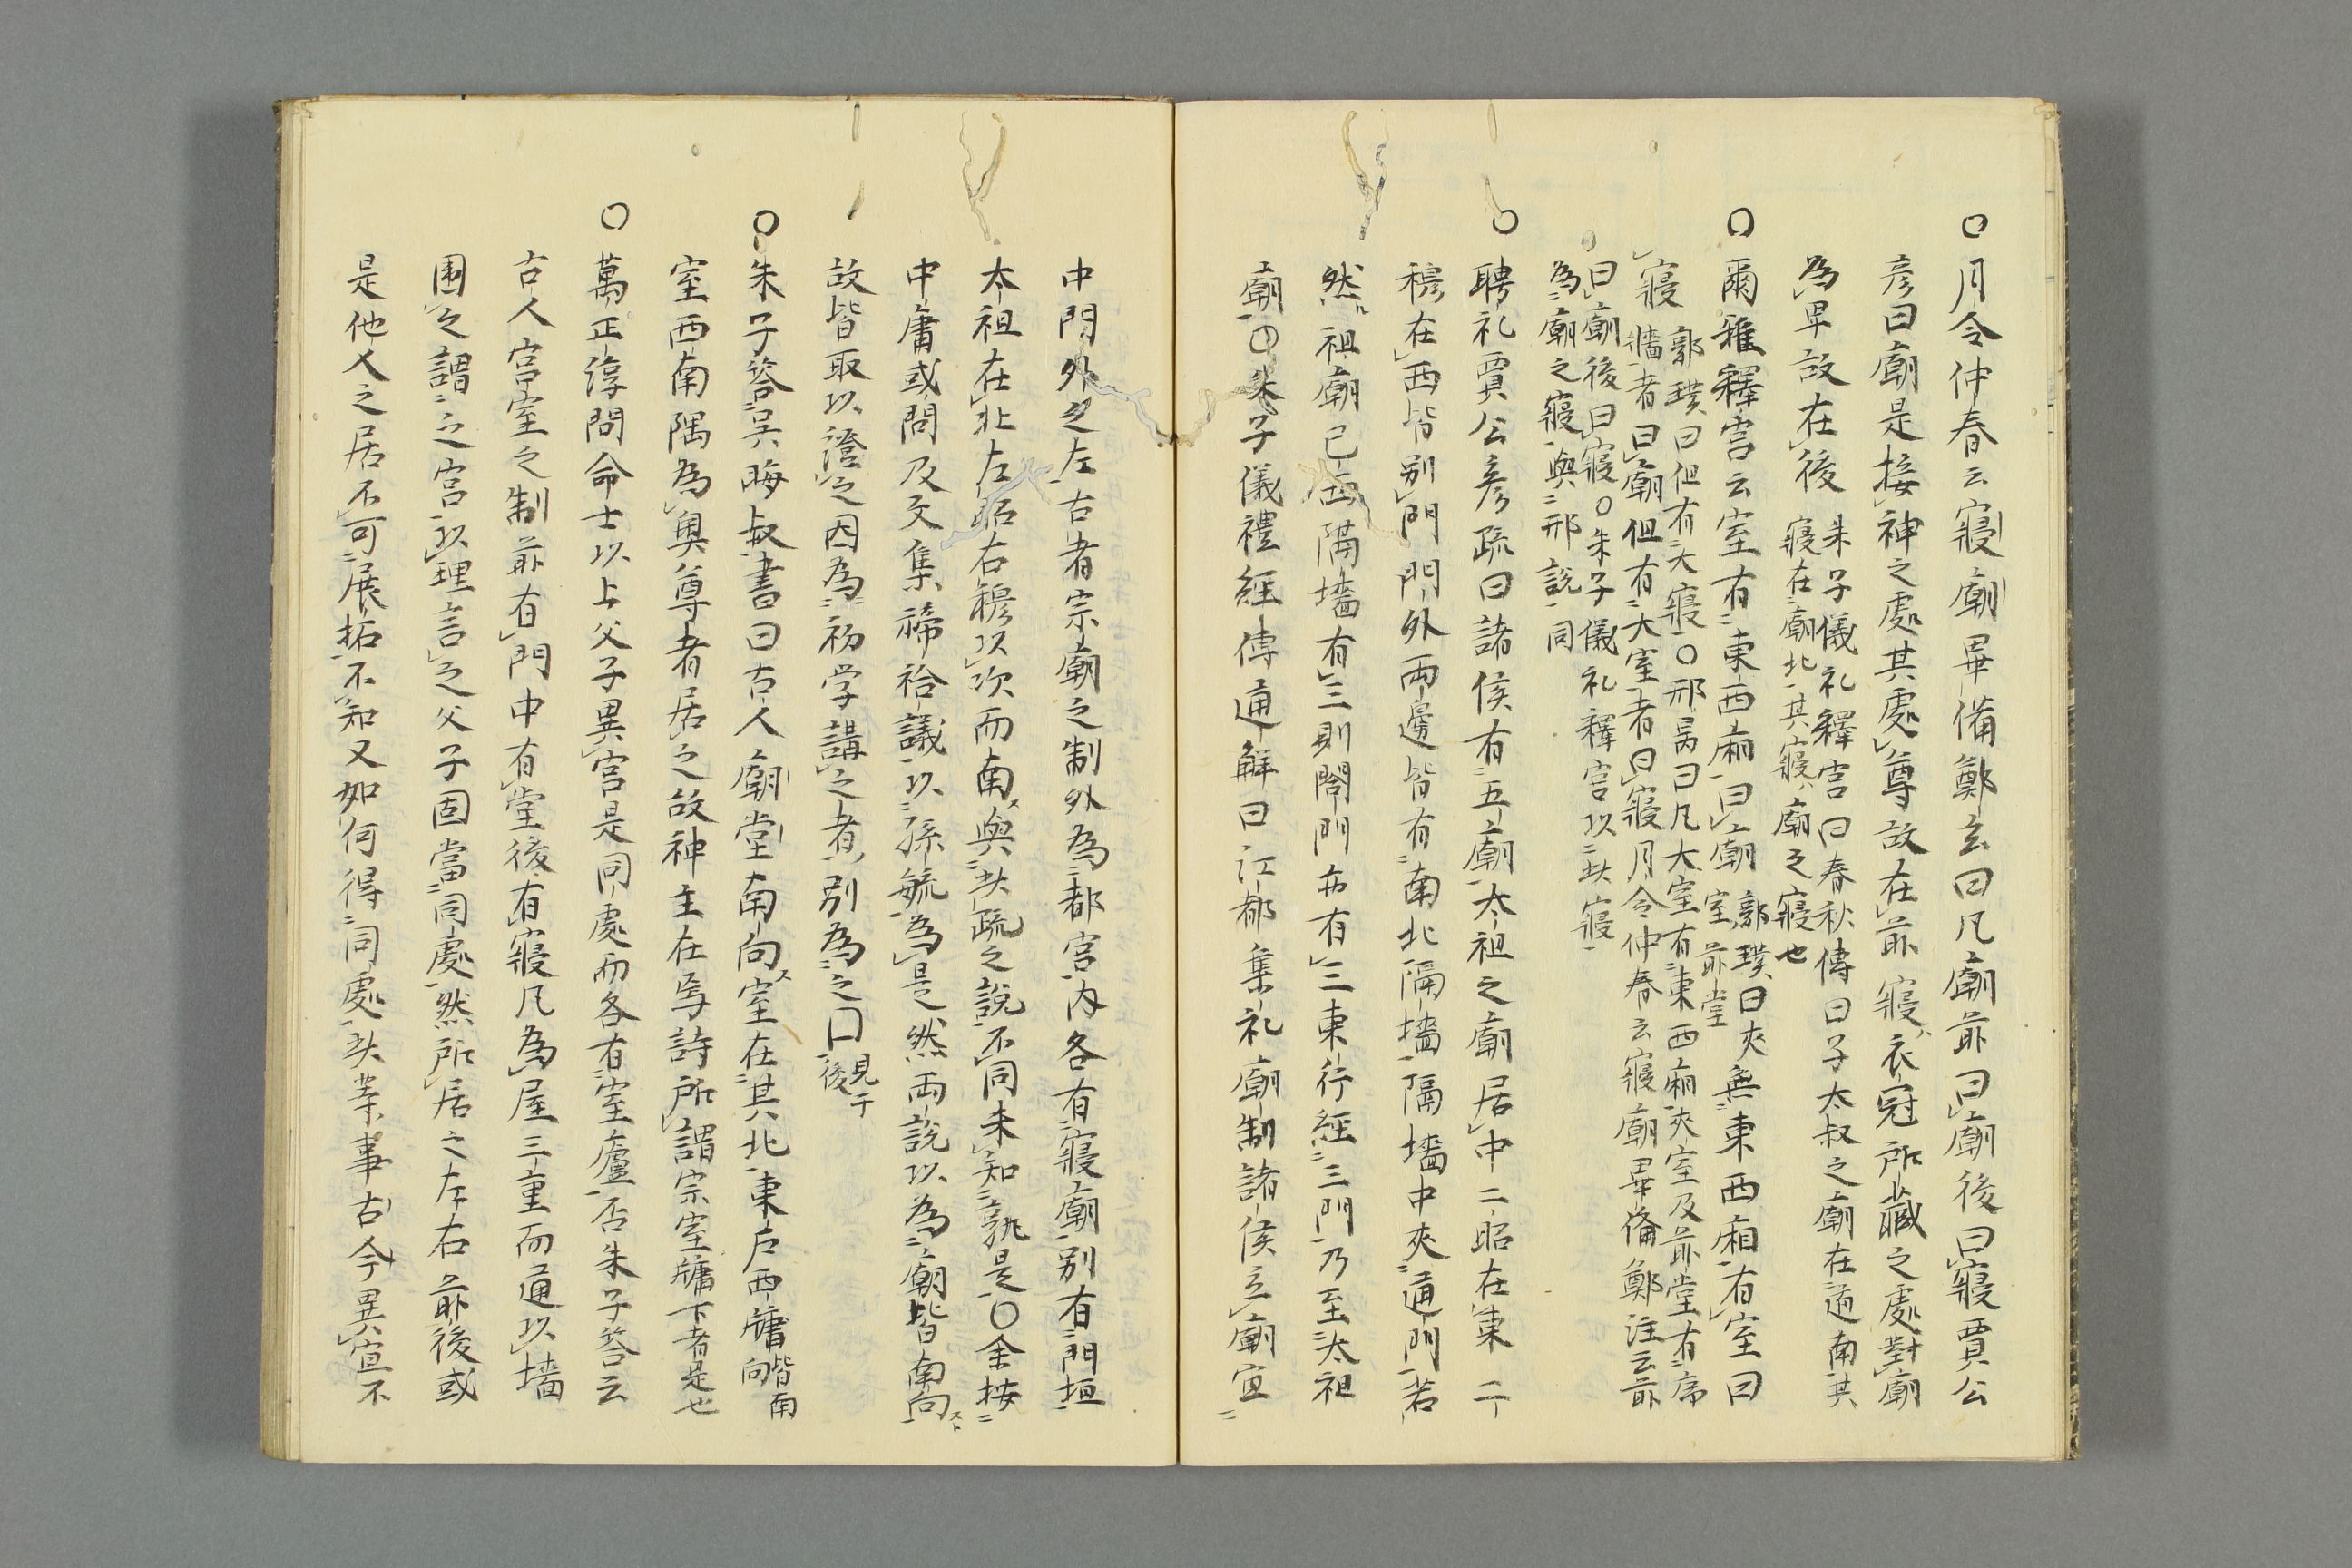 ○月令仲春云寢廟畢備鄭玄曰凡廟前曰廟後曰寢賈公
彦曰廟是接神之處其處尊故在前寢衣冠所藏之處對廟
為卑故在後
朱子儀礼釋宮曰春秋傳曰子太叔之廟在道南其
寢在廟北其寢廟之寢也
○爾雅釋宮云室有東西廂曰廟
郭璞曰夾
室前堂
無東西廂有室曰
寢
郭璞曰但有大寢○邢昺曰凡大室有東西廂夾室及前堂有序
牆者曰廟但有大室者曰寢月令仲春云寢廟畢備鄭注云前
曰廟後曰寢○朱子儀礼釋宮以此寢
為廟之寢與邢說同
○聘礼賈公彦疏曰諸侯有五廟太祖之廟居中二昭在東二
穆在西皆別門門外兩邊皆有南北隔墻隔墻中夾通門若
然祖廟已西隔墻有三則閤門亦有三東行經三門乃至太祖
廟○朱子儀禮經傳通解曰江都集礼廟制諸侯立廟宜
中門外之左右者宗廟之制外為都宮内各有寢廟別有門垣
太祖在北左昭右穆以次而南與此疏之說不同未知孰是○余按
中庸或問及文集禘祫議以孫毓為是然兩說以為廟皆南向
故皆取以證之因為初学講之者別為之口
見于
後
○朱子答吴晦叔書曰古人廟堂南向室在其北東戶西牖
皆南
向
室西南隅為奥尊者居之故神主在焉詩所謂宗室牖下者是也
○萬正淳問命士以上父子異宮是同處而各有室廬否朱子答云
古人宮室之制前有門中有堂後有寢凡為屋三重而通以墻
圍之謂之宮以理言之父子固當同處然所居之左右前後或
是他人之居不可展拓不知又如何得同處此等事古今異宜不